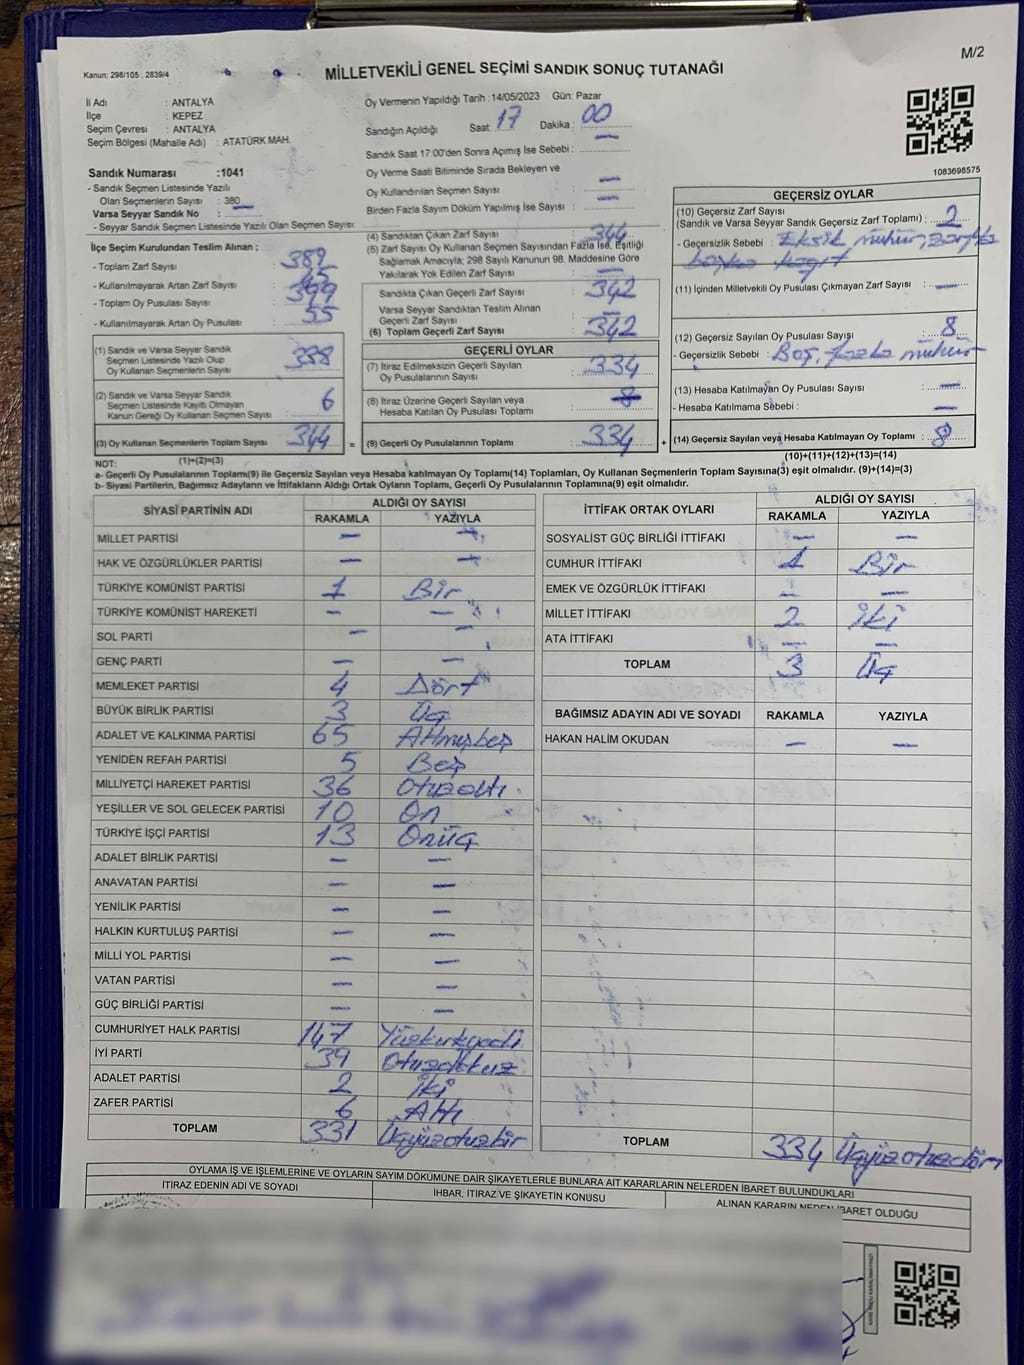 M/2
Kanun: 298/105 , 2839/4
MİLLETVEKİLİ GENEL SEÇİMİ SANDIK SONUÇ TUTANAĞI
İl Adı : ANTALYA
İlçe : KEPEZ
Seçim Çevresi : ANTALYA
Seçim Bölgesi (Mahalle Adı) : ATATÜRK MAH.
Oy Vermenin Yapıldığı Tarih :14/05/2023 Gün: Pazar
Sandığın Açıldığı Saat 17 Dakika : 00
Sandık Saat 17:00'den Sonra Açılmış İse Sebebi : —
Oy Verme Saati Bitiminde Sırada Bekleyen ve
Oy Kullandırılan Seçmen Sayısı : —
Birden Fazla Sayım Döküm Yapılmış İse Sayısı : —
1083698575
Sandık Numarası :1041
- Sandık Seçmen Listesinde Yazılı
Olan Seçmenlerin Sayısı : 380
Varsa Seyyar Sandık No : —
- Seyyar Sandık Seçmen Listesinde Yazılı Olan Seçmen Sayısı:
İlçe Seçim Kurulundan Teslim Alınan ;
- Toplam Zarf Sayısı : 389
- Kullanılmayarak Artan Zarf Sayısı : 45
- Toplam Oy Pusulası Sayısı : 399
- Kullanılmayarak Artan Oy Pusulası : 55
(1) Sandık ve Varsa Seyyar Sandık
Seçmen Listesinde Yazılı Olup
Oy Kullanan Seçmenlerin Sayısı : 338
(2) Sandık ve Varsa Seyyar Sandık
Seçmen Listesinde Kayıtlı Olmayan
Kanun Gereği Oy Kullanan Seçmen Sayısı : 6
(3) Oy Kullanan Seçmenlerin Toplam Sayısı : 344 =
(1)+(2)=(3)
(4) Sandıktan Çıkan Zarf Sayısı : 344
(5) Zarf Sayısı Oy Kullanan Seçmen Sayısından Fazla İse, Eşitliği
Sağlamak Amacıyla; 298 Sayılı Kanunun 98. Maddesine Göre
Yakılarak Yok Edilen Zarf Sayısı : —
Sandıkta Çıkan Geçerli Zarf Sayısı : 342
Varsa Seyyar Sandıktan Teslim Alınan
Geçerli Zarf Sayısı : —
(6) Toplam Geçerli Zarf Sayısı : 342
GEÇERLİ OYLAR
(7) İtiraz Edilmeksizin Geçerli Sayılan
Oy Pusulalarının Sayısı : 334
(8) İtiraz Üzerine Geçerli Sayılan veya
Hesaba Katılan Oy Pusulası Toplamı :
(9) Geçerli Oy Pusulalarının Toplamı : 334 +
GEÇERSİZ OYLAR
(10) Geçersiz Zarf Sayısı
(Sandık ve Varsa Seyyar Sandık Geçersiz Zarf Toplamı) : 2
- Geçersizlik Sebebi : Eksik mühür, zarfta
başka kağıt
(11) İçinden Milletvekili Oy Pusulası Çıkmayan Zarf Sayısı : —
(12) Geçersiz Sayılan Oy Pusulası Sayısı : 8
- Geçersizlik Sebebi : Boş, fazla mühür
(13) Hesaba Katılmayan Oy Pusulası Sayısı : —
- Hesaba Katılmama Sebebi : —
(14) Geçersiz Sayılan veya Hesaba Katılmayan Oy Toplamı : 8
(10)+(11)+(12)+(13)=(14)
NOT:
a- Geçerli Oy Pusulalarının Toplamı(9) ile Geçersiz Sayılan veya Hesaba katılmayan Oy Toplamı(14) Toplamları, Oy Kullanan Seçmenlerin Toplam Sayısına(3) eşit olmalıdır. (9)+(14)=(3)
b- Siyasi Partilerin, Bağımsız Adayların ve İttifakların Aldığı Ortak Oyların Toplamı, Geçerli Oy Pusulalarının Toplamına(9) eşit olmalıdır.
SİYASİ PARTİNİN ADI ALDIĞI OY SAYISI
RAKAMLA YAZIYLA
MİLLET PARTİSİ — —
HAK VE ÖZGÜRLÜKLER PARTİSİ — —
TÜRKİYE KOMÜNİST PARTİSİ 1 Bir
TÜRKİYE KOMÜNİST HAREKETİ — —
SOL PARTİ — —
GENÇ PARTİ — —
MEMLEKET PARTİSİ 4 Dört
BÜYÜK BİRLİK PARTİSİ 3 Üç
ADALET VE KALKINMA PARTİSİ 65 Altmışbeş
YENİDEN REFAH PARTİSİ 5 Beş
MİLLİYETÇİ HAREKET PARTİSİ 36 Otuzaltı
YEŞİLLER VE SOL GELECEK PARTİSİ 10 On
TÜRKİYE İŞÇİ PARTİSİ 13 Onüç
ADALET BİRLİK PARTİSİ — —
ANAVATAN PARTİSİ — —
YENİLİK PARTİSİ — —
HALKIN KURTULUŞ PARTİSİ — —
MİLLİ YOL PARTİSİ — —
VATAN PARTİSİ — —
GÜÇ BİRLİĞİ PARTİSİ — —
CUMHURİYET HALK PARTİSİ 147 Yüzkırkyedi
İYİ PARTİ 39 Otuzdokuz
ADALET PARTİSİ 2 İki
ZAFER PARTİSİ 6 Altı
TOPLAM 331 Üçyüzotuzbir
İTTİFAK ORTAK OYLARI ALDIĞI OY SAYISI
RAKAMLA YAZIYLA
SOSYALİST GÜÇ BİRLİĞİ İTTİFAKI — —
CUMHUR İTTİFAKI 1 Bir
EMEK VE ÖZGÜRLÜK İTTİFAKI — —
MİLLET İTTİFAKI 2 İki
ATA İTTİFAKI — —
TOPLAM 3 Üç
BAĞIMSIZ ADAYIN ADI VE SOYADI RAKAMLA YAZIYLA
HAKAN HALİM OKUDAN — —
TOPLAM 334 Üçyüzotuzdört
OYLAMA İŞ VE İŞLEMLERİNE VE OYLARIN SAYIM DÖKÜMÜNE DAİR ŞİKAYETLERLE BUNLARA AİT KARARLARIN NELERDEN İBARET BULUNDUKLARI
İTİRAZ EDENİN ADI VE SOYADI İHBAR, İTİRAZ VE ŞİKAYETİN KONUSU ALINAN KARARIN NEDEN İBARET OLDUĞU